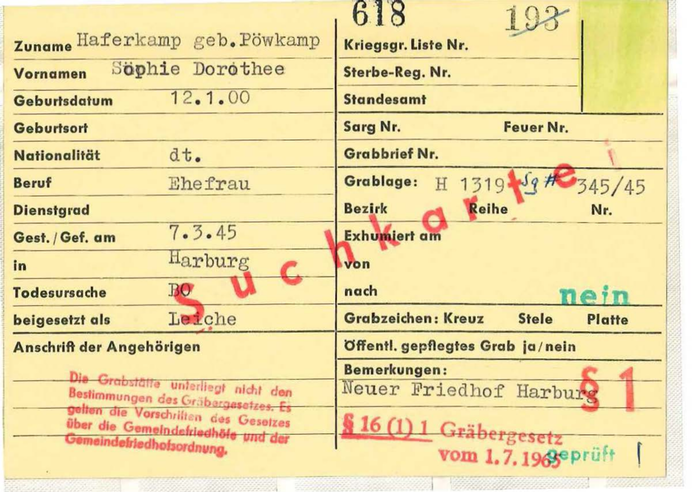 618 193
Zuname Haferkamp geb.Pöwkamp
Vornamen Söphie Dorothee
Geburtsdatum 12.1.00
Geburtsort
Nationalität dt.
Beruf Ehefrau
Dienstgrad
Gest./Gef. am 7.3.45
in Harburg
Todesursache BO
beigesetzt als Leiche
Anschrift der Angehörigen
Die Grabstätte unterliegt nicht den
Bestimmungen des Gräbergesetzes. Es
gelten die Vorschriften des Gesetzes
über die Gemeindefriedhöfe und der
Gemeindefriedhofsordnung.
Kriegsgr. Liste Nr.
Sterbe-Reg. Nr.
Standesamt
Sarg Nr. Feuer Nr.
Grabbrief Nr.
Grablage: H 1319 345/45
Bezirk Reihe Nr.
Exhumiert am
von
nach
nein
Grabzeichen: Kreuz Stele Platte
Öffentl. gepflegtes Grab ja/nein
Bemerkungen:
Neuer Friedhof Harburg
§ 1
§ 16 (1) 1 Gräbergesetz
vom 1.7.1965
geprüft
Suchkartei